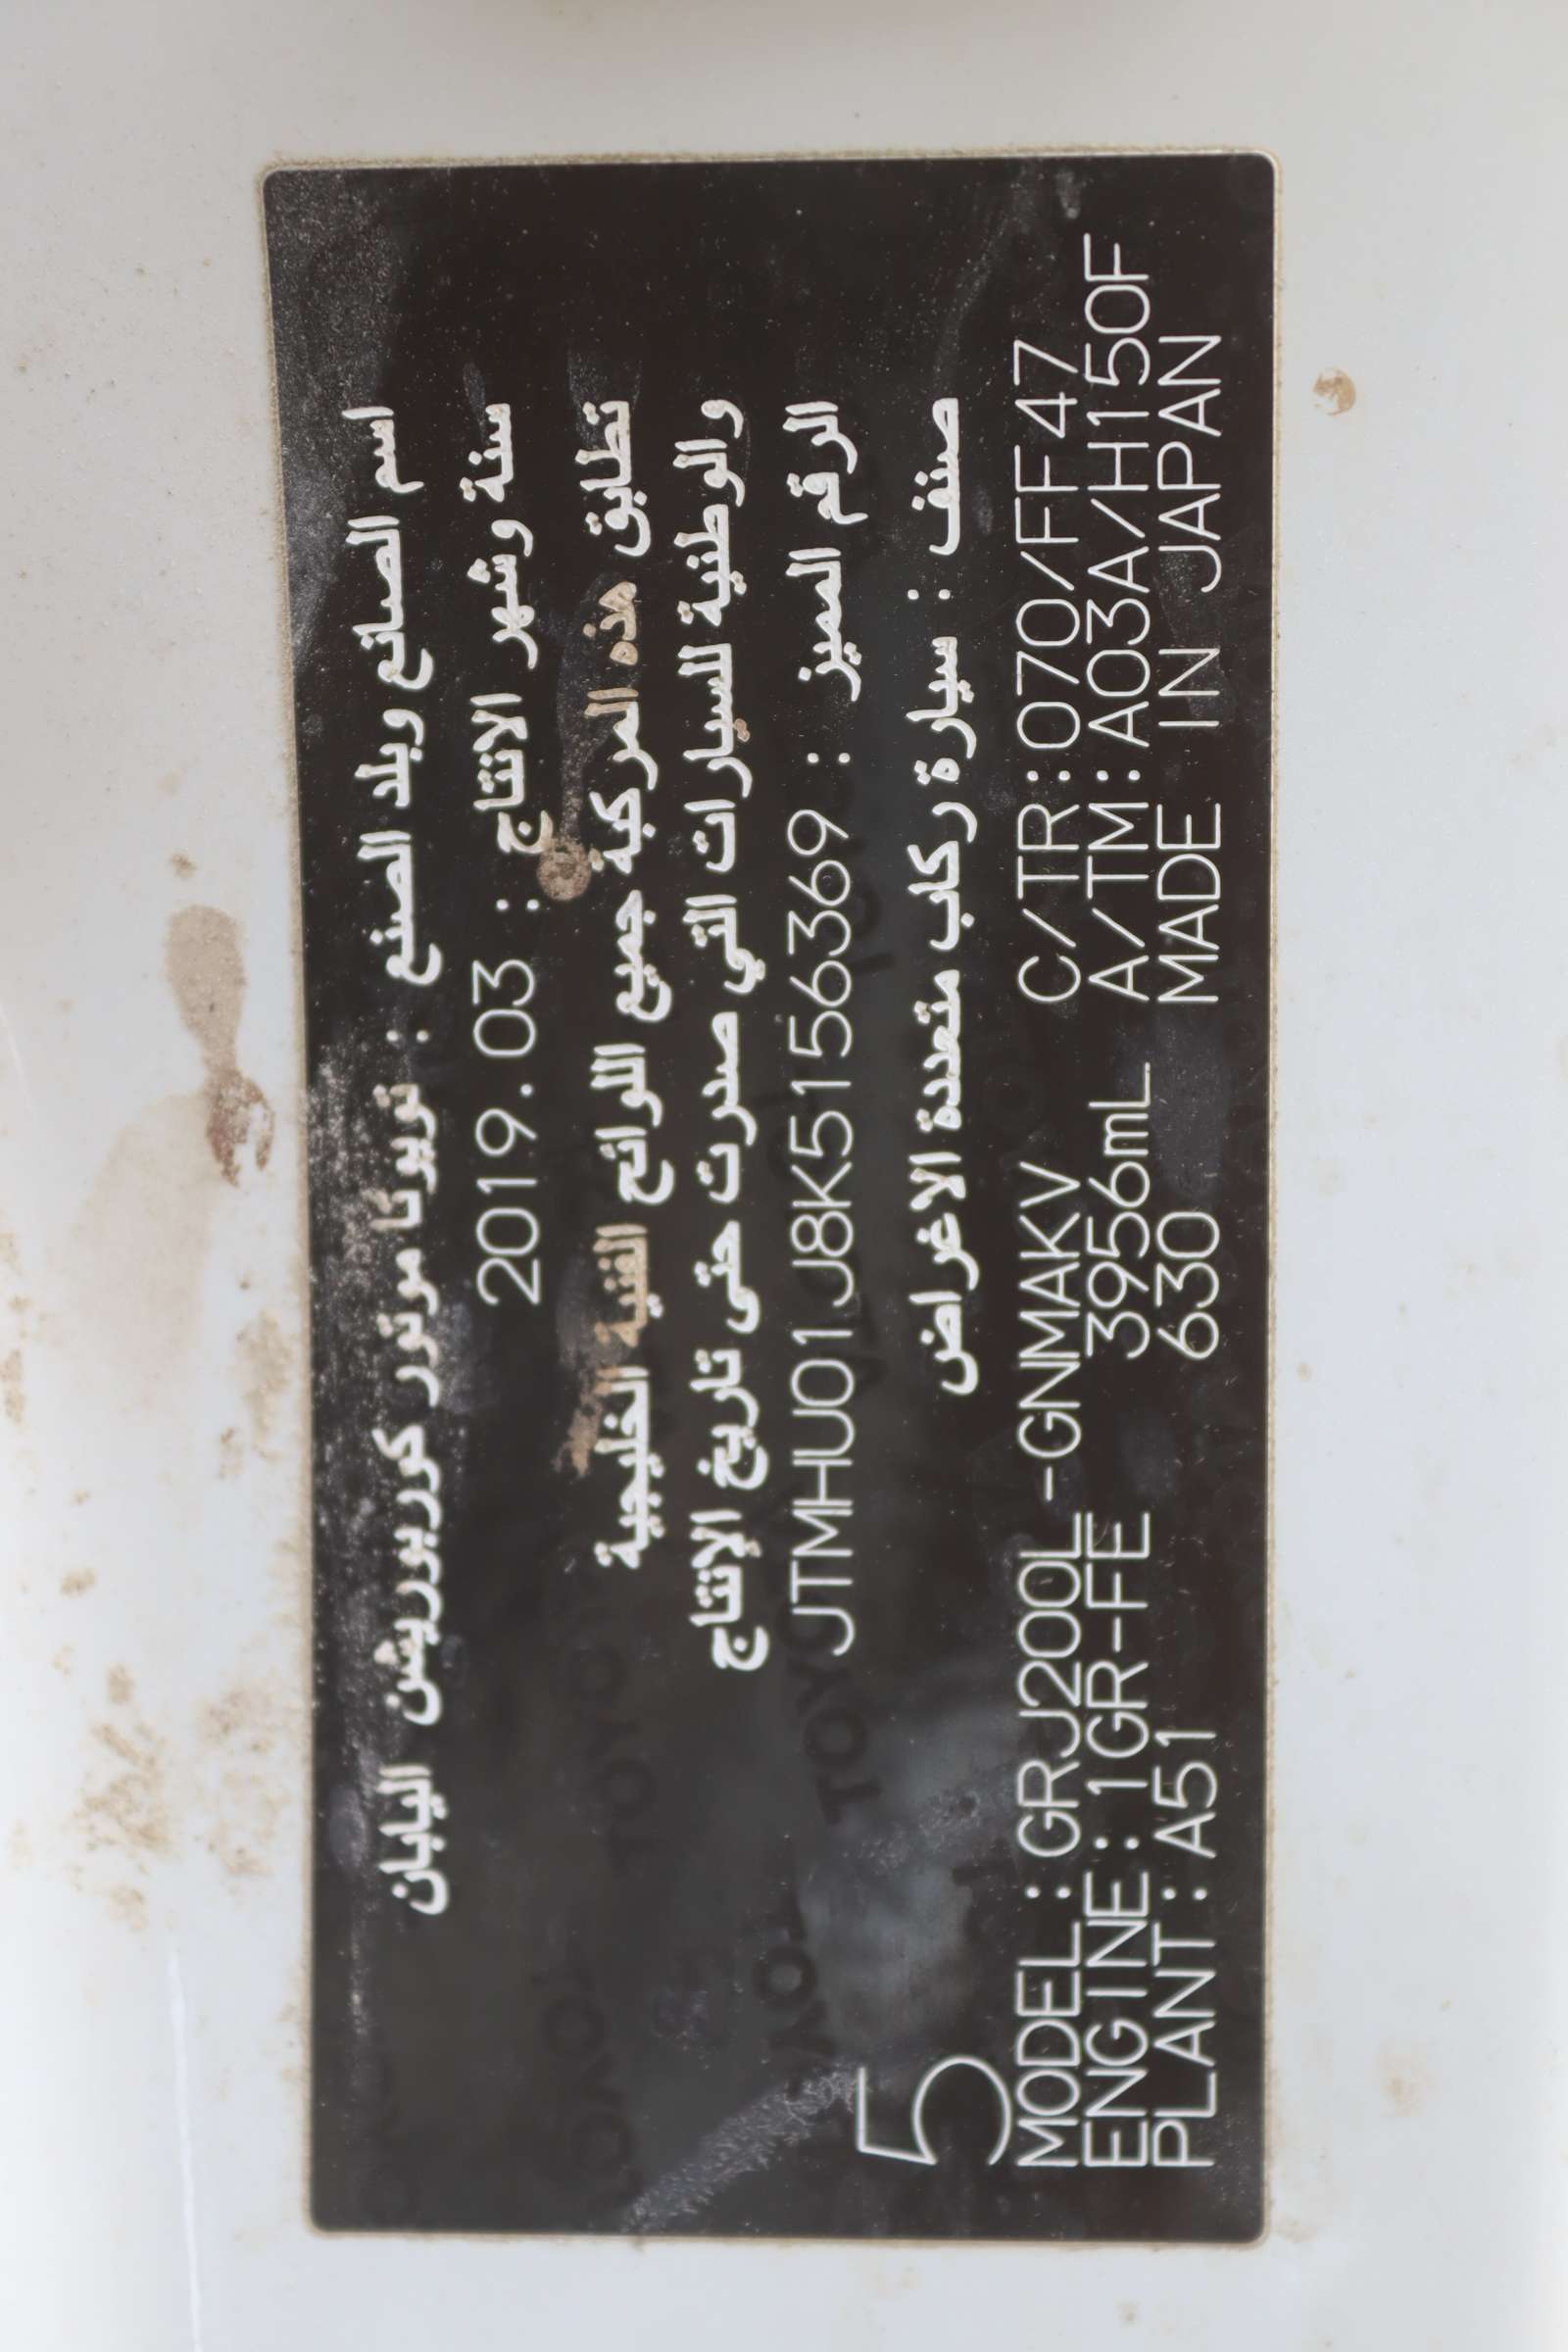 اسم الصانع وبلد الصنع : تويوتا موتور كوربوريشن اليابان
سنة وشهر الانتاج : 2019.03
تطابق هذه المركبة جميع اللوائح الفنية الخليجية
والوطنية للسيارات التي صدرت حتى تاريخ الإنتاج
الرقم المميز : JTMHU01J8K5156369
صنف : سيارة ركاب متعددة الاغراض
5
MODEL:GRJ200L-GNMAKV C/TR:070/FF47
ENGINE:1GR-FE 3956mL A/TM:A03A/H150F
PLANT:A51 630 MADE IN JAPAN